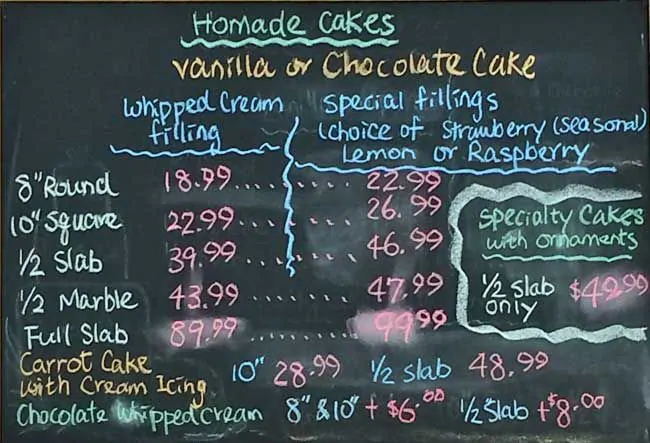 Homade Cakes
vanilla or Chocolate Cake
whipped Cream filling
special fillings
(choice of strawberry (seasonal)
Lemon or Raspberry
8" Round 18.99..... ... 22.99
10" square 22.99..... ... 26.99
1/2 Slab 39.99..... ... 46.99
1/2 Marble 43.99........ 47.99
Full Slab 89.99........ 99.99
specialty Cakes
with ornaments
1/2 slab only $49.99
Carrot Cake
with Cream Icing 10" 28.99 1/2 slab 48.99
Chocolate whipped cream 8" & 10" + $6.00 1/2 slab + $8.00